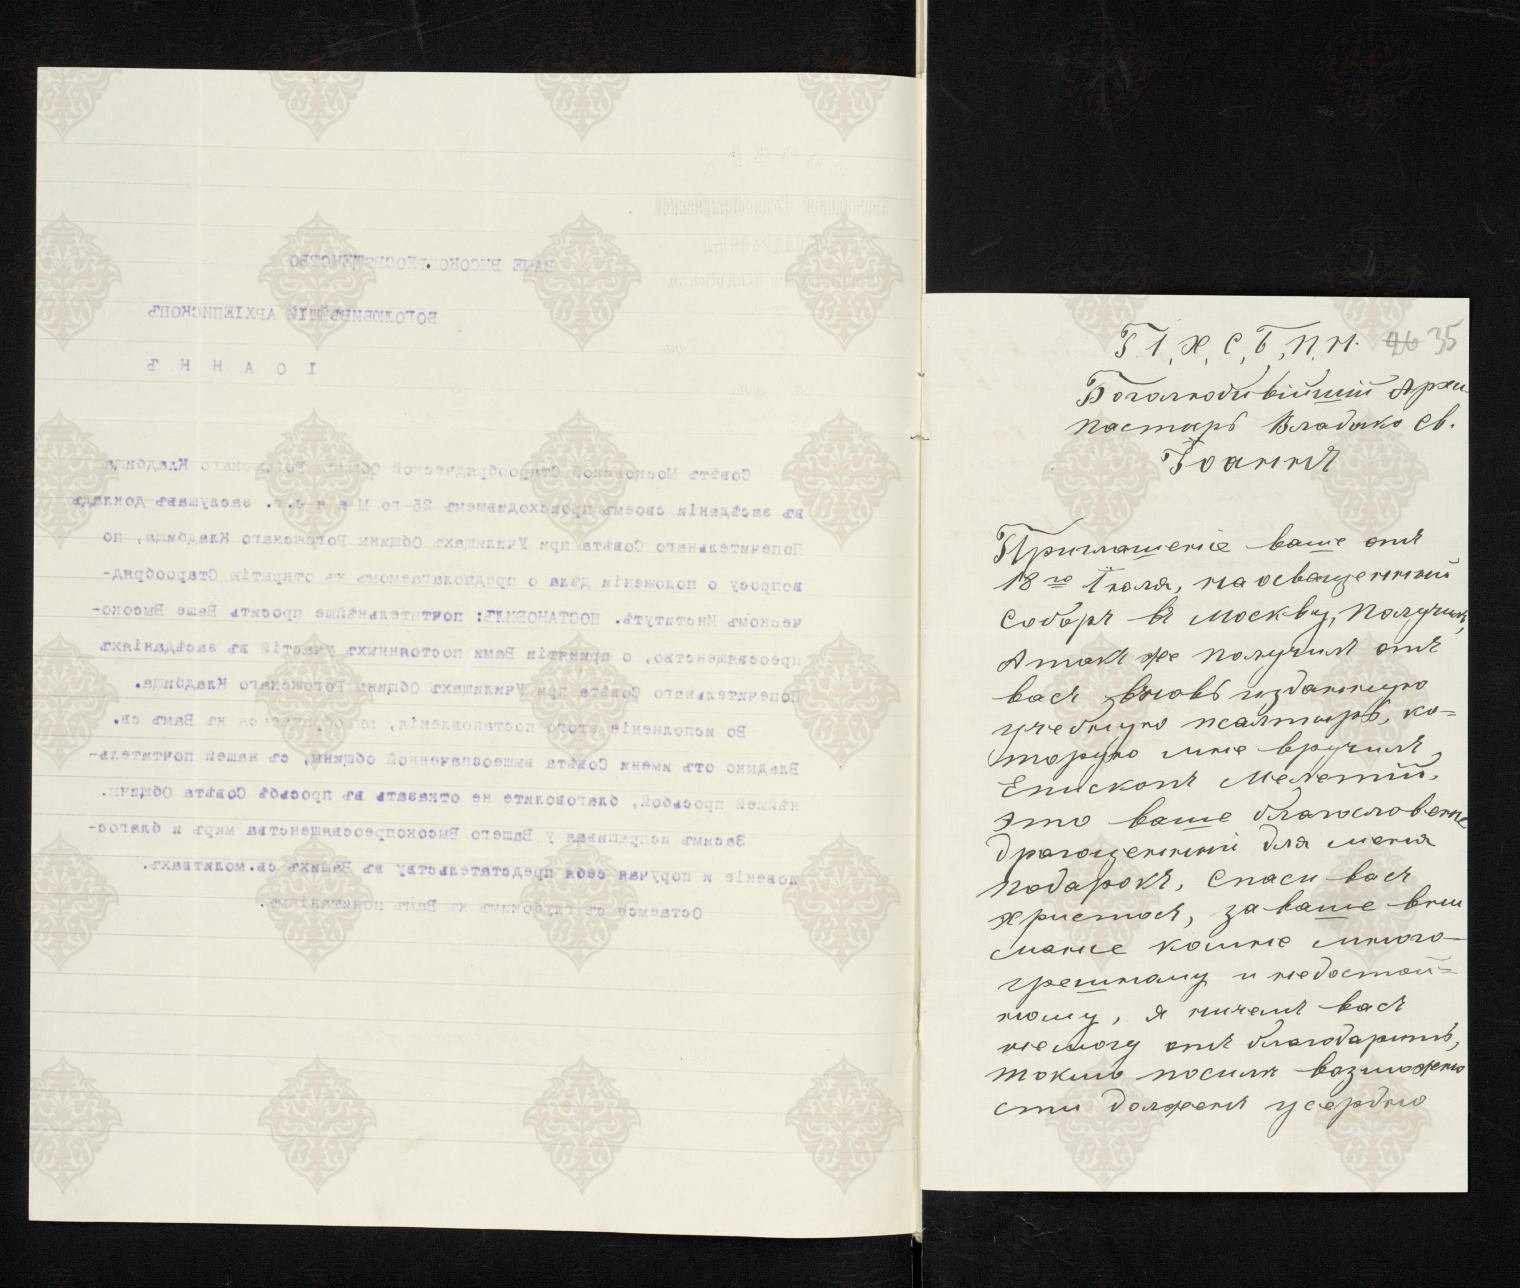 ВАШЕ ВЫСОКОПРЕОСВЯЩЕНСТВО
БОГОЛЮБИВѢЙШІЙ АРХІЕПИСКОПЪ
І О А Н Н Ъ
Совѣтъ Московской Старообрядческой Общины Рогожскаго Кладбища
въ засѣданіи своемъ происходившемъ 25-го Мая с.г. заслушавъ докладъ
Попечительнаго Совѣта при Училищахъ Общины Рогожскаго Кладбища, по
вопросу о положеніи дѣла о предполагаемомъ къ открытію Старообряд-
ческомъ Институтѣ. ПОСТАНОВИЛЪ: почтительнѣйше просить Ваше Высоко-
преосвященство, о принятіи Вами постоянныхъ участій въ засѣданіяхъ
Попечительнаго Совѣта при Училищахъ Общины Рогожскаго Кладбища.
Во исполненіе этого постановленія, мы обращаемся къ Вамъ св.
Владыко отъ имени Совѣта вышеозначенной общины, съ нашей почтитель-
нѣйшей просьбой, благоволите не отказать въ просьбѣ Совѣта Общины.
Засимъ испрашивая у Вашего Высокопреосвященства миръ и благос-
ловеніе и поручая себя предстательству въ Вашихъ св. молитвахъ.
Остаемся съ глубокимъ къ Вамъ почитаніемъ.
Г. І, Х, С, Б, П, Н. 26 35
Боголюбивійший Архи
пастырь Владыко св.
Іоаннъ
Приглашеніе ваше отъ
18го Іюля, на освященный
соборъ въ Москву, получилъ,
А такъ же получилъ отъ
васъ вновь изданную
учебную псалтырь, ко=
торую мне вручилъ,
Епископъ Мелетій.
это ваше благословение
драгоценный для меня
подарокъ, Спаси васъ
христосъ, за ваше вни
мание комне много-
грешному и недостой=
ному, я ничемъ васъ
немогу отъ благодарить,
токмо посили возможно
сти долженъ усердно